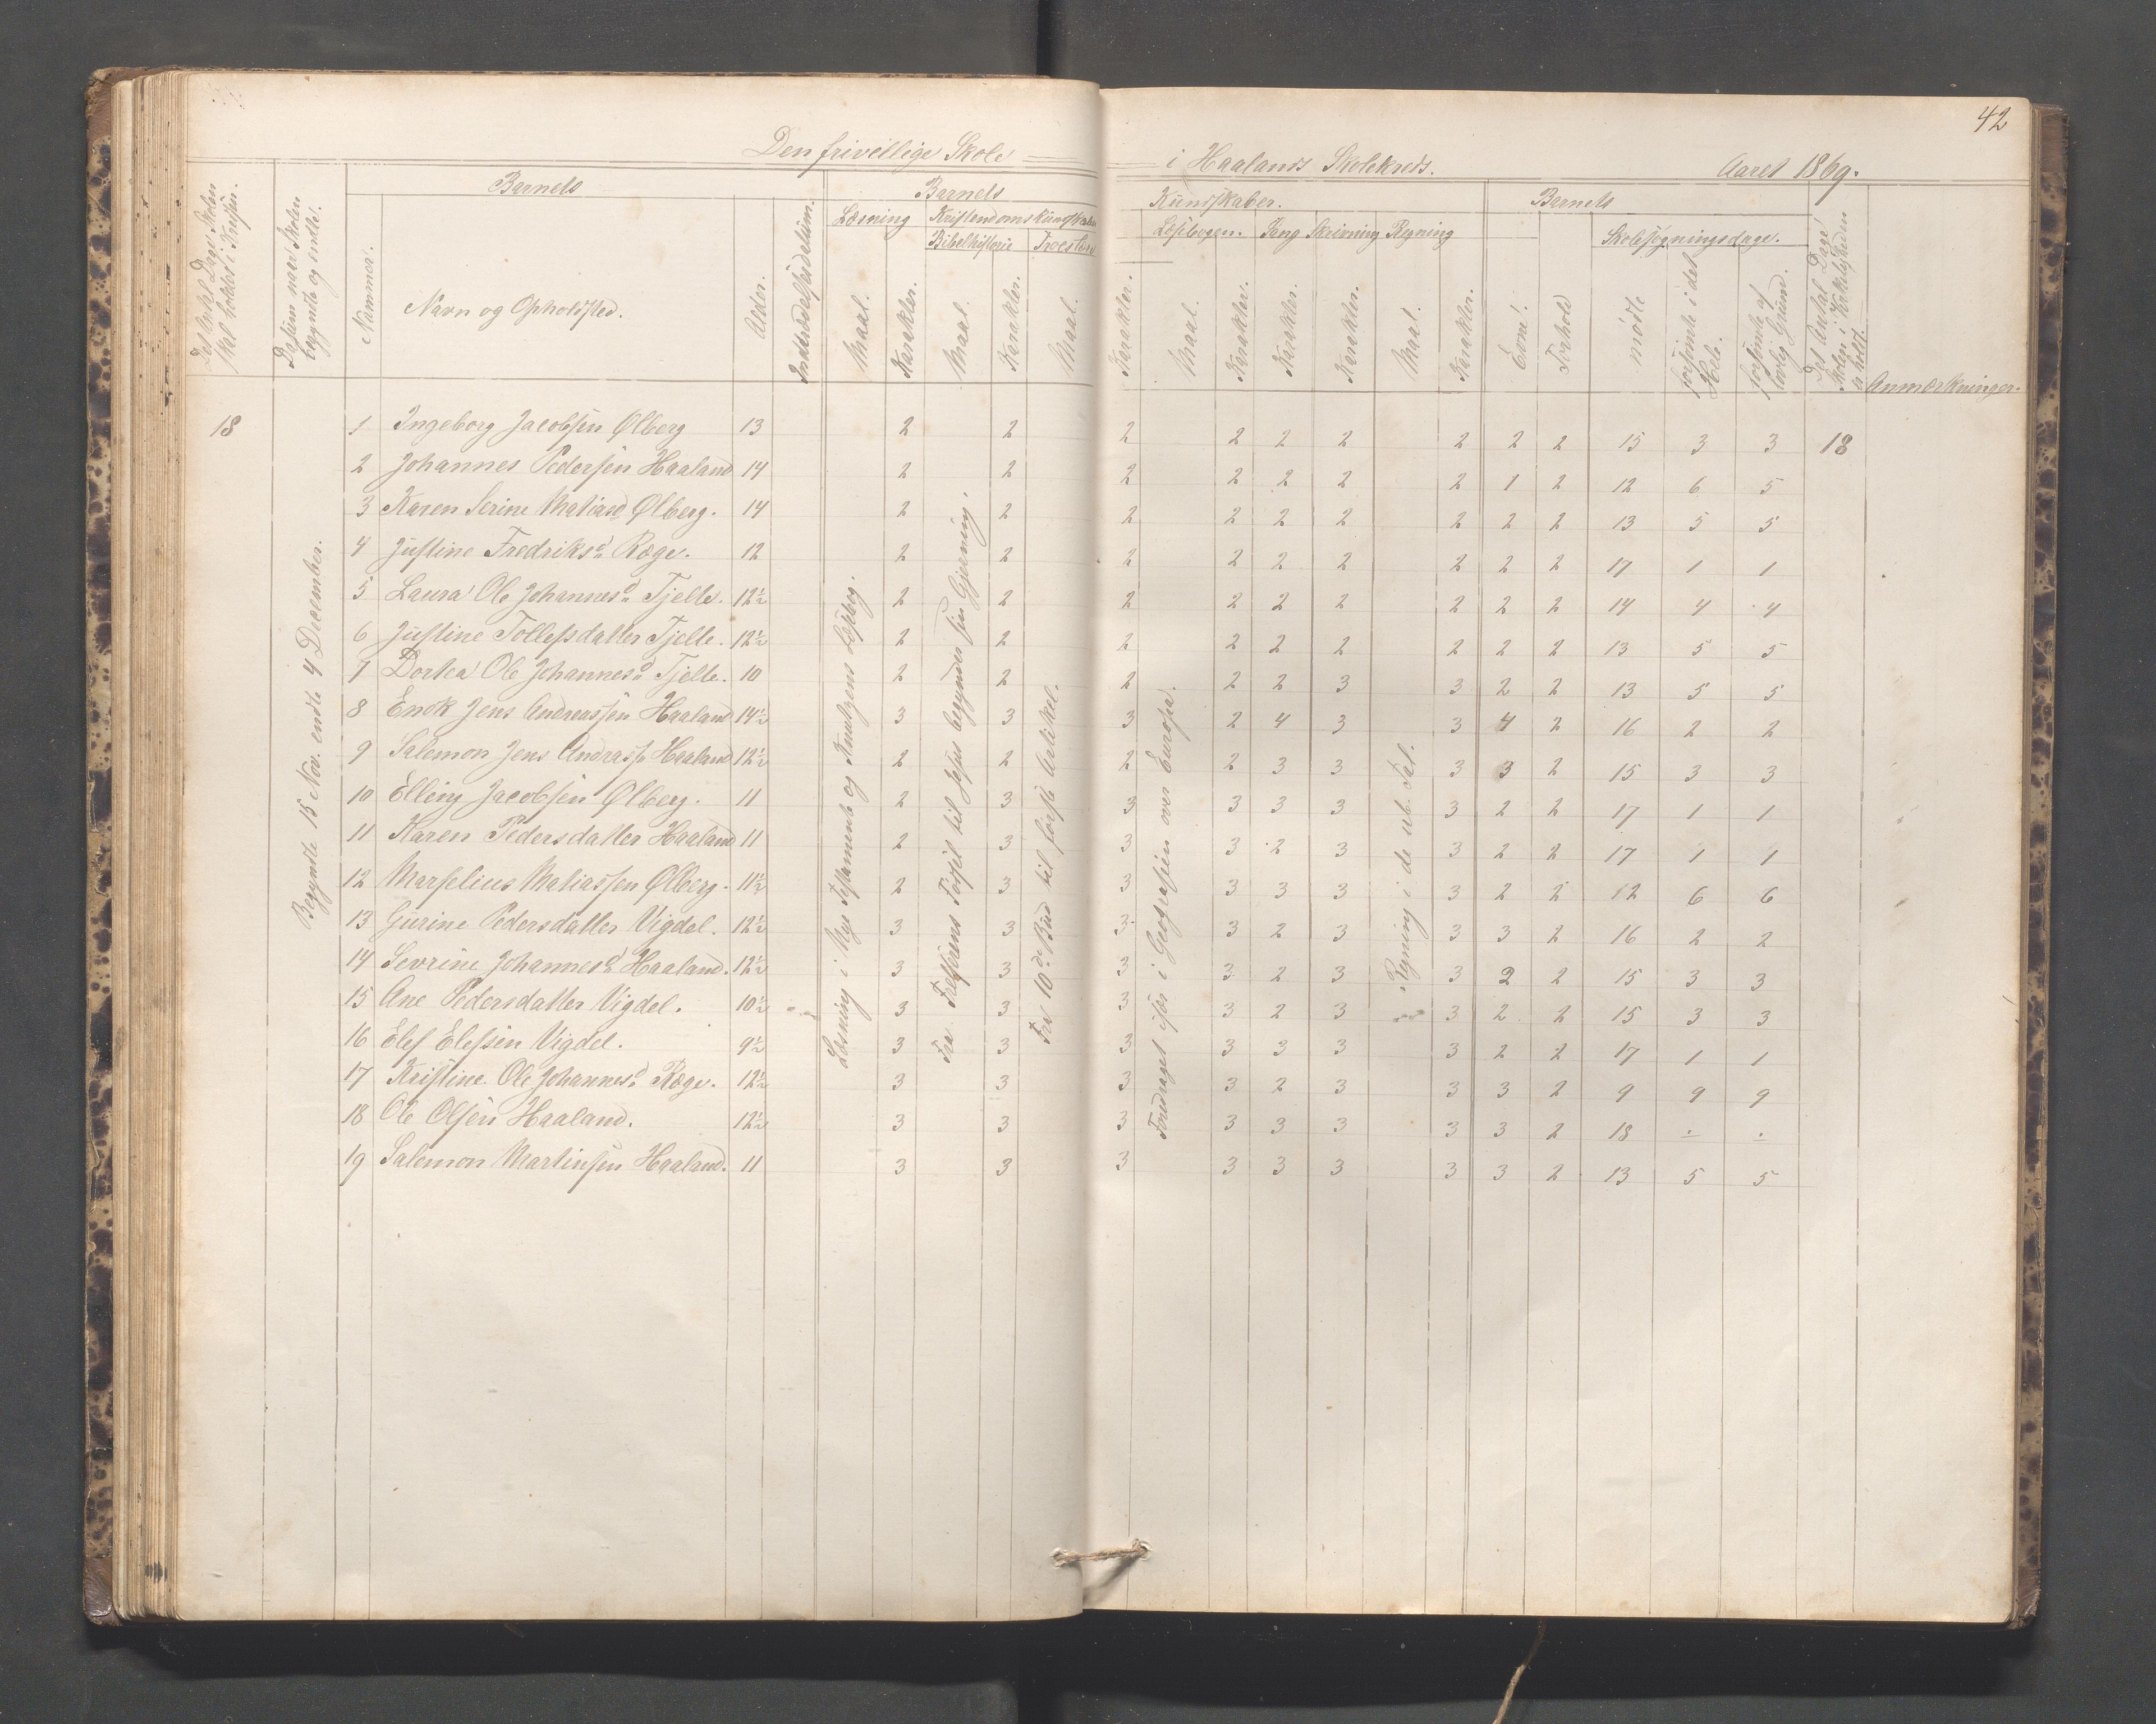 42
Den frivillige Skole i Haalands Skolekreds. Aaret 1869.
Det Antal Dage Skolen skal holdes i Kredsen.
Datum naar Skolen begyndte og endte.
Barnets
Nummer.
Navn og Opholdssted.
Alder.
Indtrædelsesdatum.
Barnets Kundskaber.
Læsning Kristendomskundskab
Bibelhistorie Troeslære
Læsebogen. Sang Skrivning Regning
Maal. Karakter. Maal. Karakter. Maal. Karakter. Maal. Karakter. Karakter. Karakter. Maal. Karakter.
Barnets
Evne. Forhold
Skolesøgningsdage.
mødte forsømte i det Hele. forsømte af lovlig Grund.
Det Antal Dage Skolen i Virkeligheden er holdt.
Anmærkninger.
18
Begyndte 15 Nov. endte 4 December.
Læsning i Nye Testamente og Knudsens Læsebog.
Fra Frelserens Fødsel til Jesus begynder sin Gjerning.
Fra 10de Bud til første Artikel.
Foredraget især i Geografien over Europa.
Regning i de ub. Tal.
1 Ingeborg Jacobsen Ølberg 13 2 2 2 2 2 2 2 2 2 15 3 3 18
2 Johannes Pedersen Haaland 14 2 2 2 2 2 2 2 1 2 12 6 5
3 Karen Serine Matiasd Ølberg. 14 2 2 2 2 2 2 2 2 2 13 5 5
4 Justine Fredriksd Ræge. 12 2 2 2 2 2 2 2 2 2 17 1 1
5 Laura Ole Johannesd Tjelle. 12½ 2 2 2 2 2 2 2 2 2 14 4 4
6 Justine Tollefsdatter Tjelle. 12½ 2 2 2 2 2 2 2 2 2 13 5 5
7 Dortea Ole Johannesd Tjelle. 10 2 2 2 2 2 3 3 2 2 13 5 5
8 Enok Jens Andreassen Haaland 14½ 3 3 3 2 4 3 3 4 2 16 2 2
9 Salemon Jens Andrass Haaland 12½ 2 2 2 2 3 3 3 3 2 15 3 3
10 Elling Jacobsen Ølberg. 11 2 3 3 3 3 3 3 2 2 17 1 1
11 Karen Pedersdatter Haaland 11 2 3 3 3 2 3 3 2 2 17 1 1
12 Marselius Matiassen Ølberg. 11½ 2 3 3 3 3 3 3 2 2 12 6 6
13 Gurine Pedersdatter Vigdel. 12½ 3 3 3 3 2 3 3 3 2 16 2 2
14 Sevrine Johannesd Haaland. 12½ 3 3 3 3 2 3 3 2 2 15 3 3
15 Ane Pedersdatter Vigdel. 10½ 3 3 3 3 2 3 3 2 2 15 3 3
16 Elef Elefsen Vigdel. 9½ 3 3 3 3 3 3 3 2 2 17 1 1
17 Kristine Ole Johannesd Ræge. 12½ 3 3 3 3 2 3 3 3 2 9 9 9
18 Ole Olsen Haaland. 12½ 3 3 3 3 3 3 3 3 2 18 ÷ ÷
19 Salemon Martinsen Haaland. 11 3 3 3 3 3 3 3 3 2 13 5 5